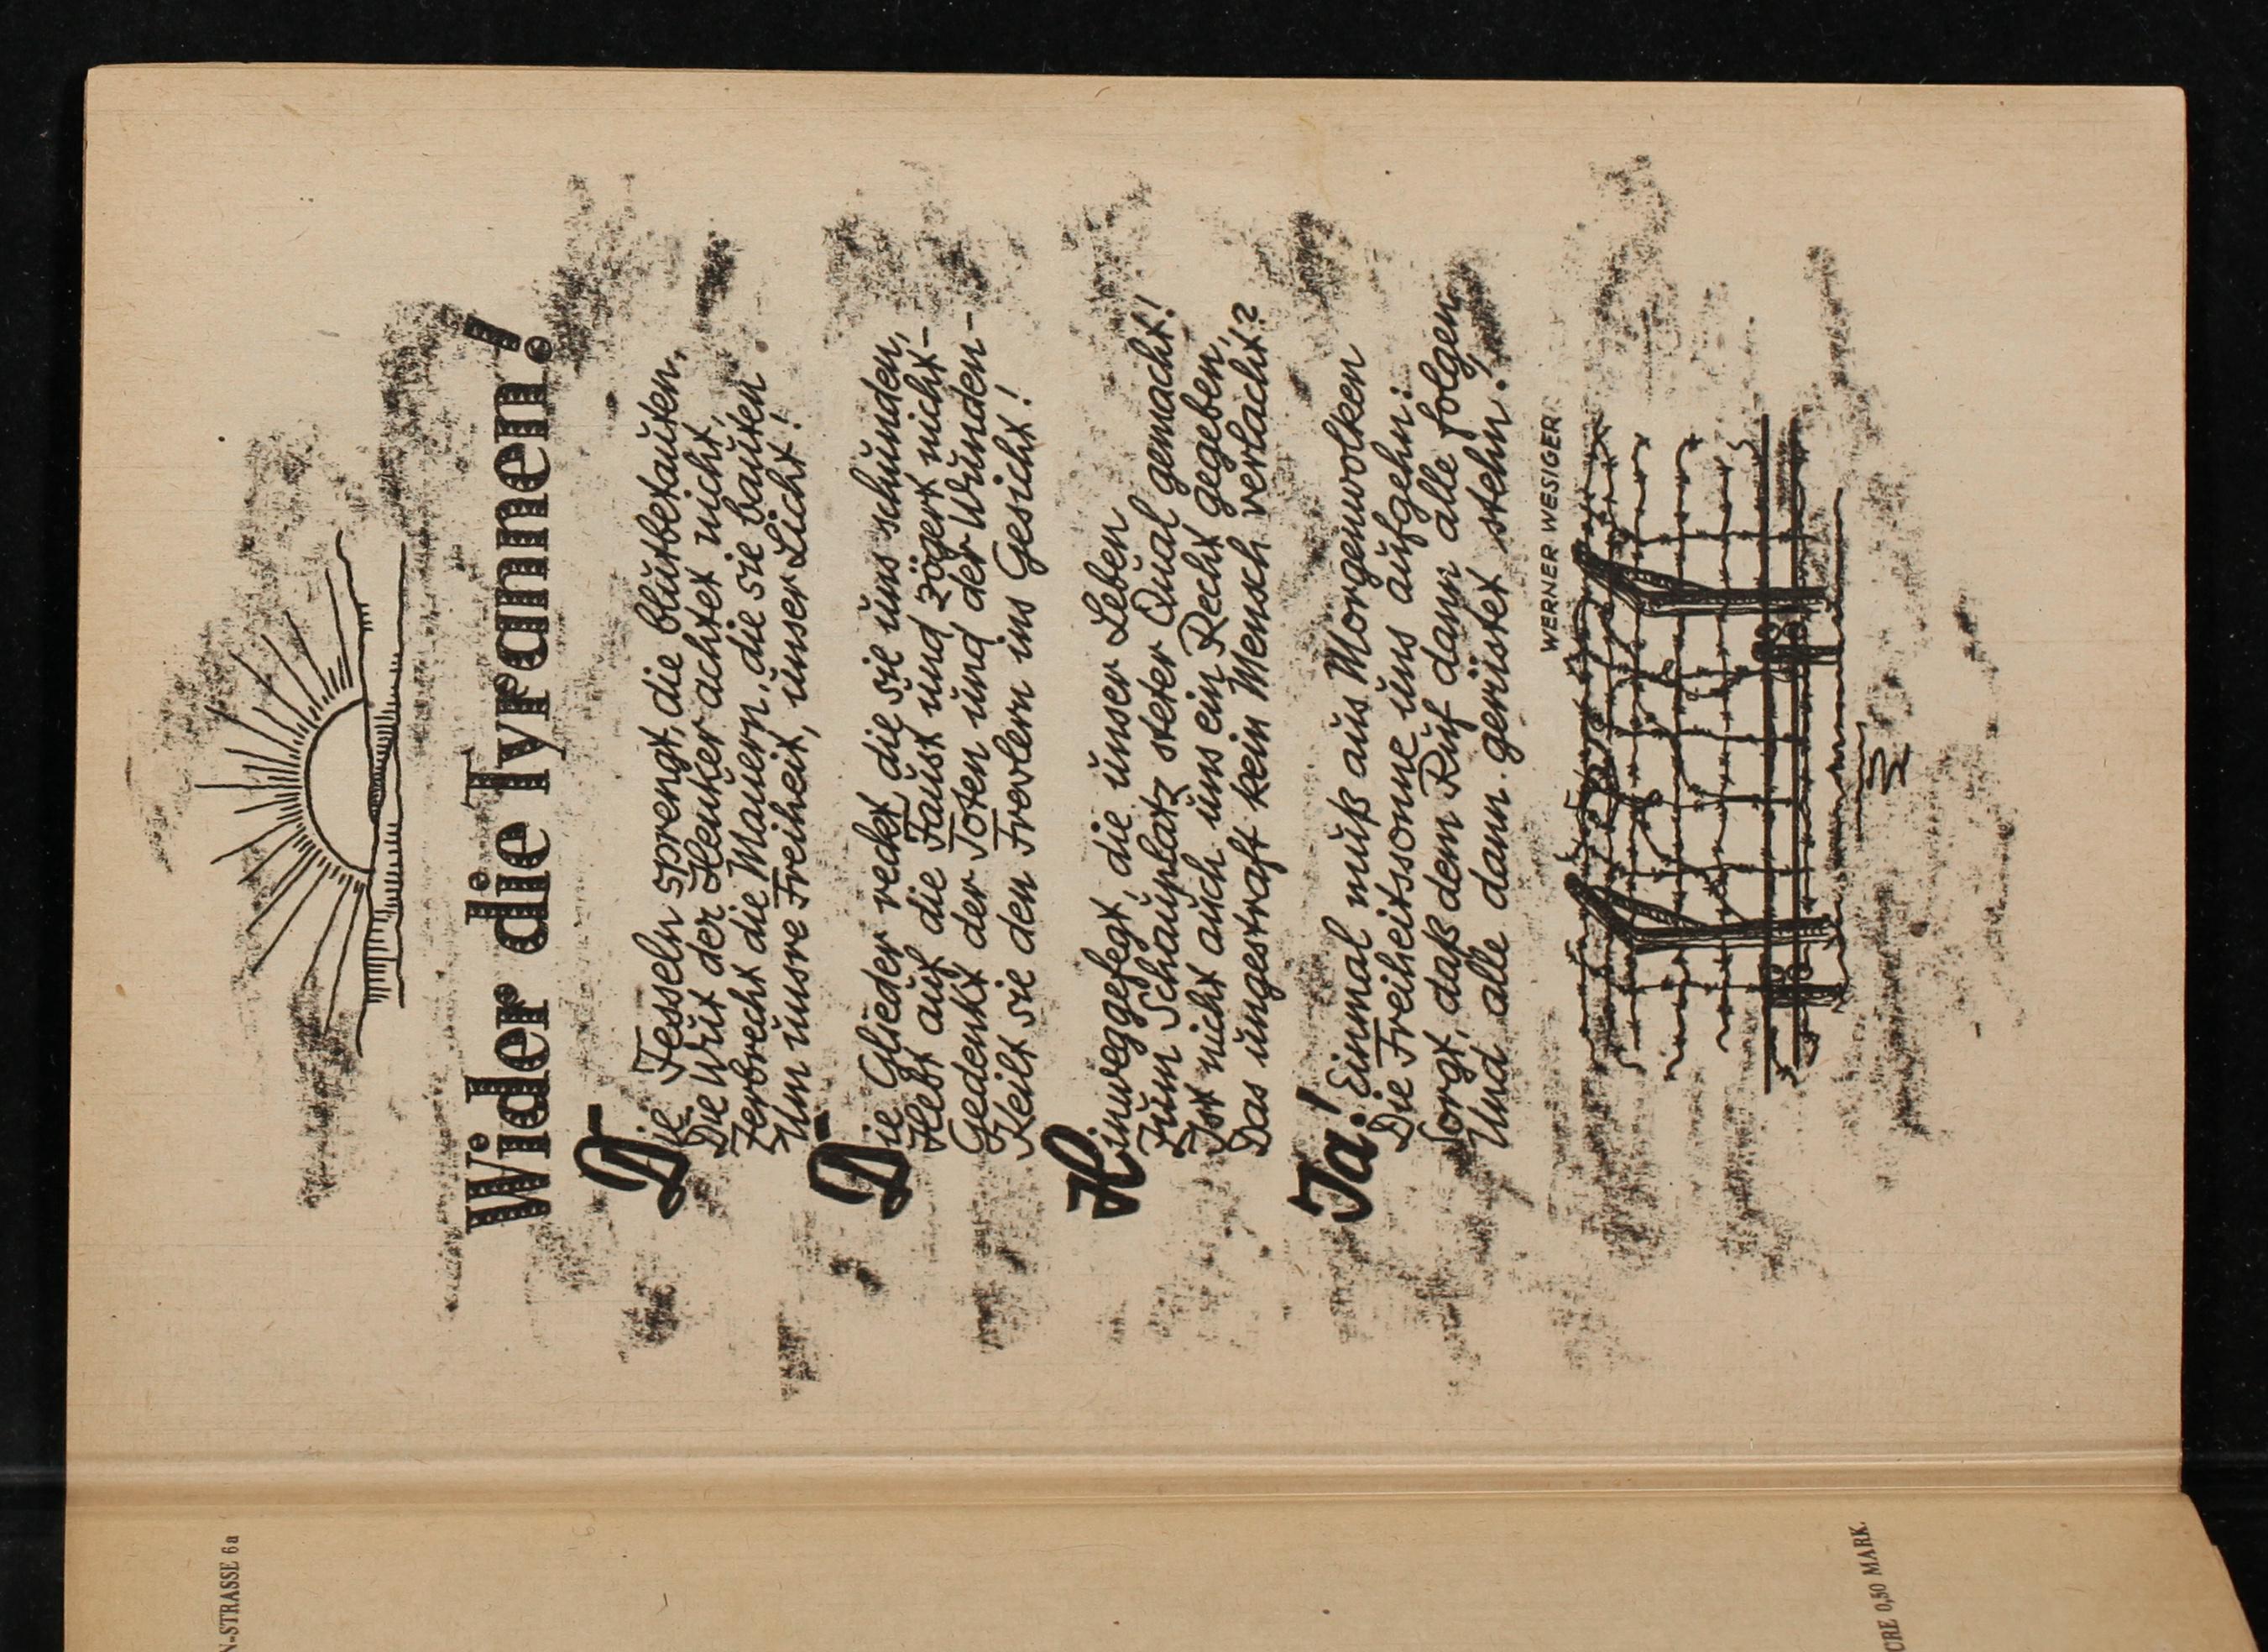 Wider die Tyrannen!
Die Fesseln sprengt, die blutbetauten,
Die Wut der Henker achtet nicht,
Zerbrecht die Mauern, die sie bauten
Um unsre Freiheit, unser Licht!
Die Glieder reckt, die sie uns schunden,
Hebt auf die Faust und zögert nicht-
Gedenkt der Toten und der Wunden-
Keilt sie den Frevlern ins Gesicht!
Hinweggefegt, die unser Leben
Zum Schauplatz steter Qual gemacht!
Ist nicht auch uns ein Recht gegeben,
Das ungestraft kein Mensch verlacht?
Ja! Einmal muß aus Morgenwolken
Die Freiheitssonne uns aufgehn:
Sorgt, daß dem Ruf dann alle folgen
Und alle dann gerüstet stehn!
WERNER WESIGER
N-STRASSE 6a
CRE 0,50 MARK.